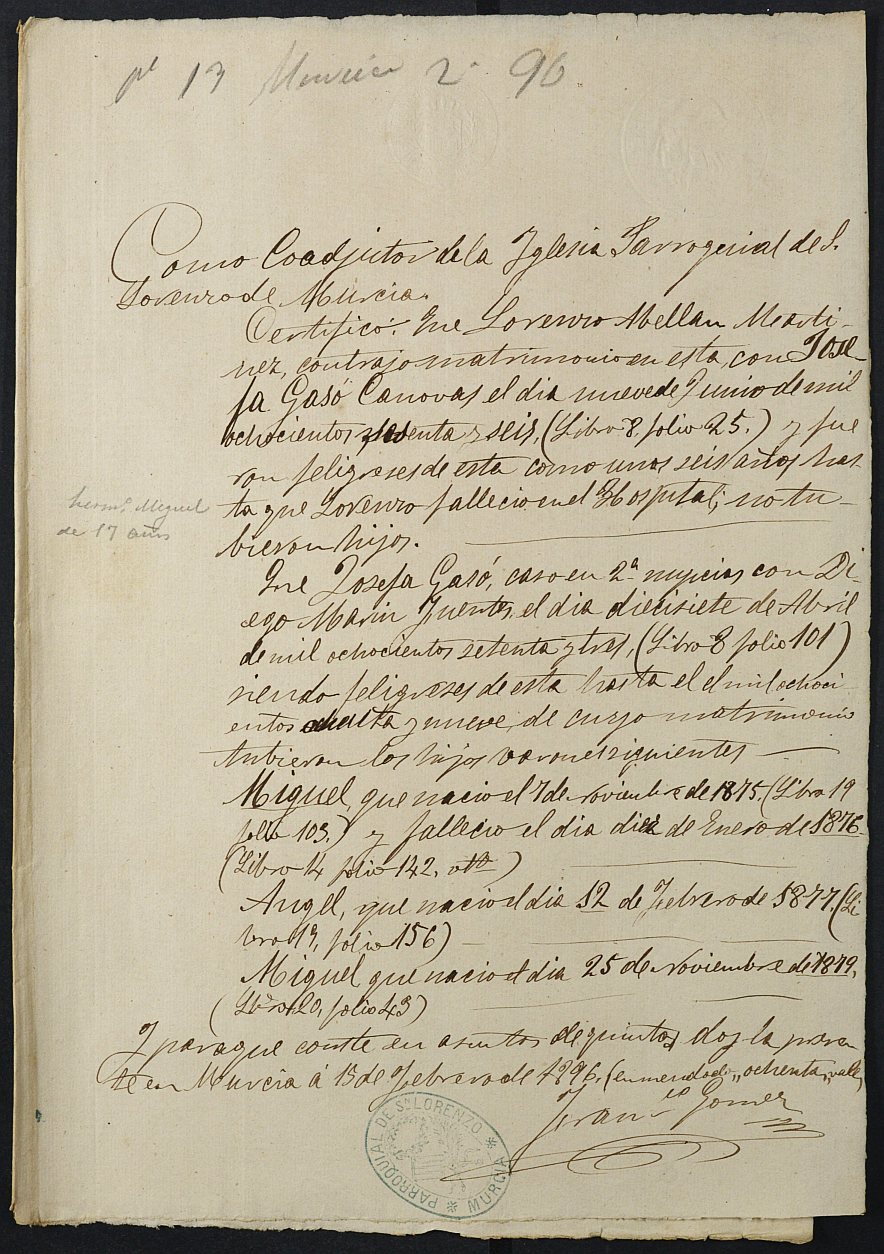 pl 13 Murcia 2ª 96
Como Coadjutor de la Iglesia Parroquial de S.
Lorenzo de Murcia.
Certifico: Que Lorenzo Abellan Marti-
nez, contrajo matrimonio en esta, con Jose-
fa Gasó Canovas el dia nueve de Junio de mil
ochocientos sesenta y seis, (Libro 8, folio 25.) y fue
ron feligreses de esta como unos seis años has
ta que Lorenzo fallecio en el Hospital; no tu-
bieron hijos.
hermº Miguel
de 17 años
Que Josefa Gasó, caso en 2ª nupcias con Di-
ego Marin Fuentes, el dia diecisiete de Abril
de mil ochocientos setenta y tres, (Libro 8 folio 101)
siendo feligreses de esta hasta el de mil ochoci-
entos ochenta y nueve, de cuyo matrimonio
tubieron los hijos varones siguientes
Miguel, que nacio el 7 de noviembre de 1875. (Libro 19
folio 103.) y fallecio el dia diez de Enero de 1876
(Libro 14 folio 142, vto)
Angel, que nacio el dia 12 de Febrero de 1877. (Li
bro 19, folio 156)
Miguel que nacio el dia 25 de noviembre de 1879.
(Libro 20, folio 43)
Y para que conste en asuntos de quintas doy la presen
te en Murcia á 15 de Febrero de 1896. (enmendado "ochenta" vale)
Franco Gomez
PARROQUIAL DE Sn LORENZO * MURCIA *